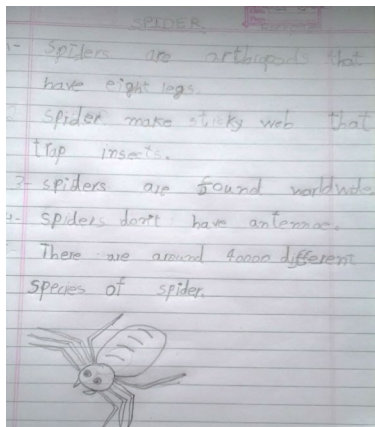 SPIDER
1- Spiders are arthropods that
have eight legs.
2- spider make sticky web that
trap insects.
3- spiders are found worldwide
4- spiders don't have antennae.
5- There are around 40000 different
species of spider.